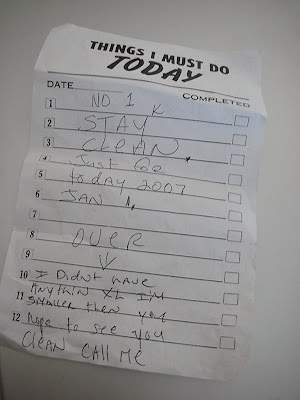 THINGS I MUST DO
TODAY
DATE COMPLETED
1 NO 1
2 STAY
3 CLEAN,
4 Just foe
5 today 2007
6 JAN 1,
7
8 OVER
9
10 I Didnt have
Anythin XL I'm
11 smaller then you
12 hope to see you
CLEAN CALL ME